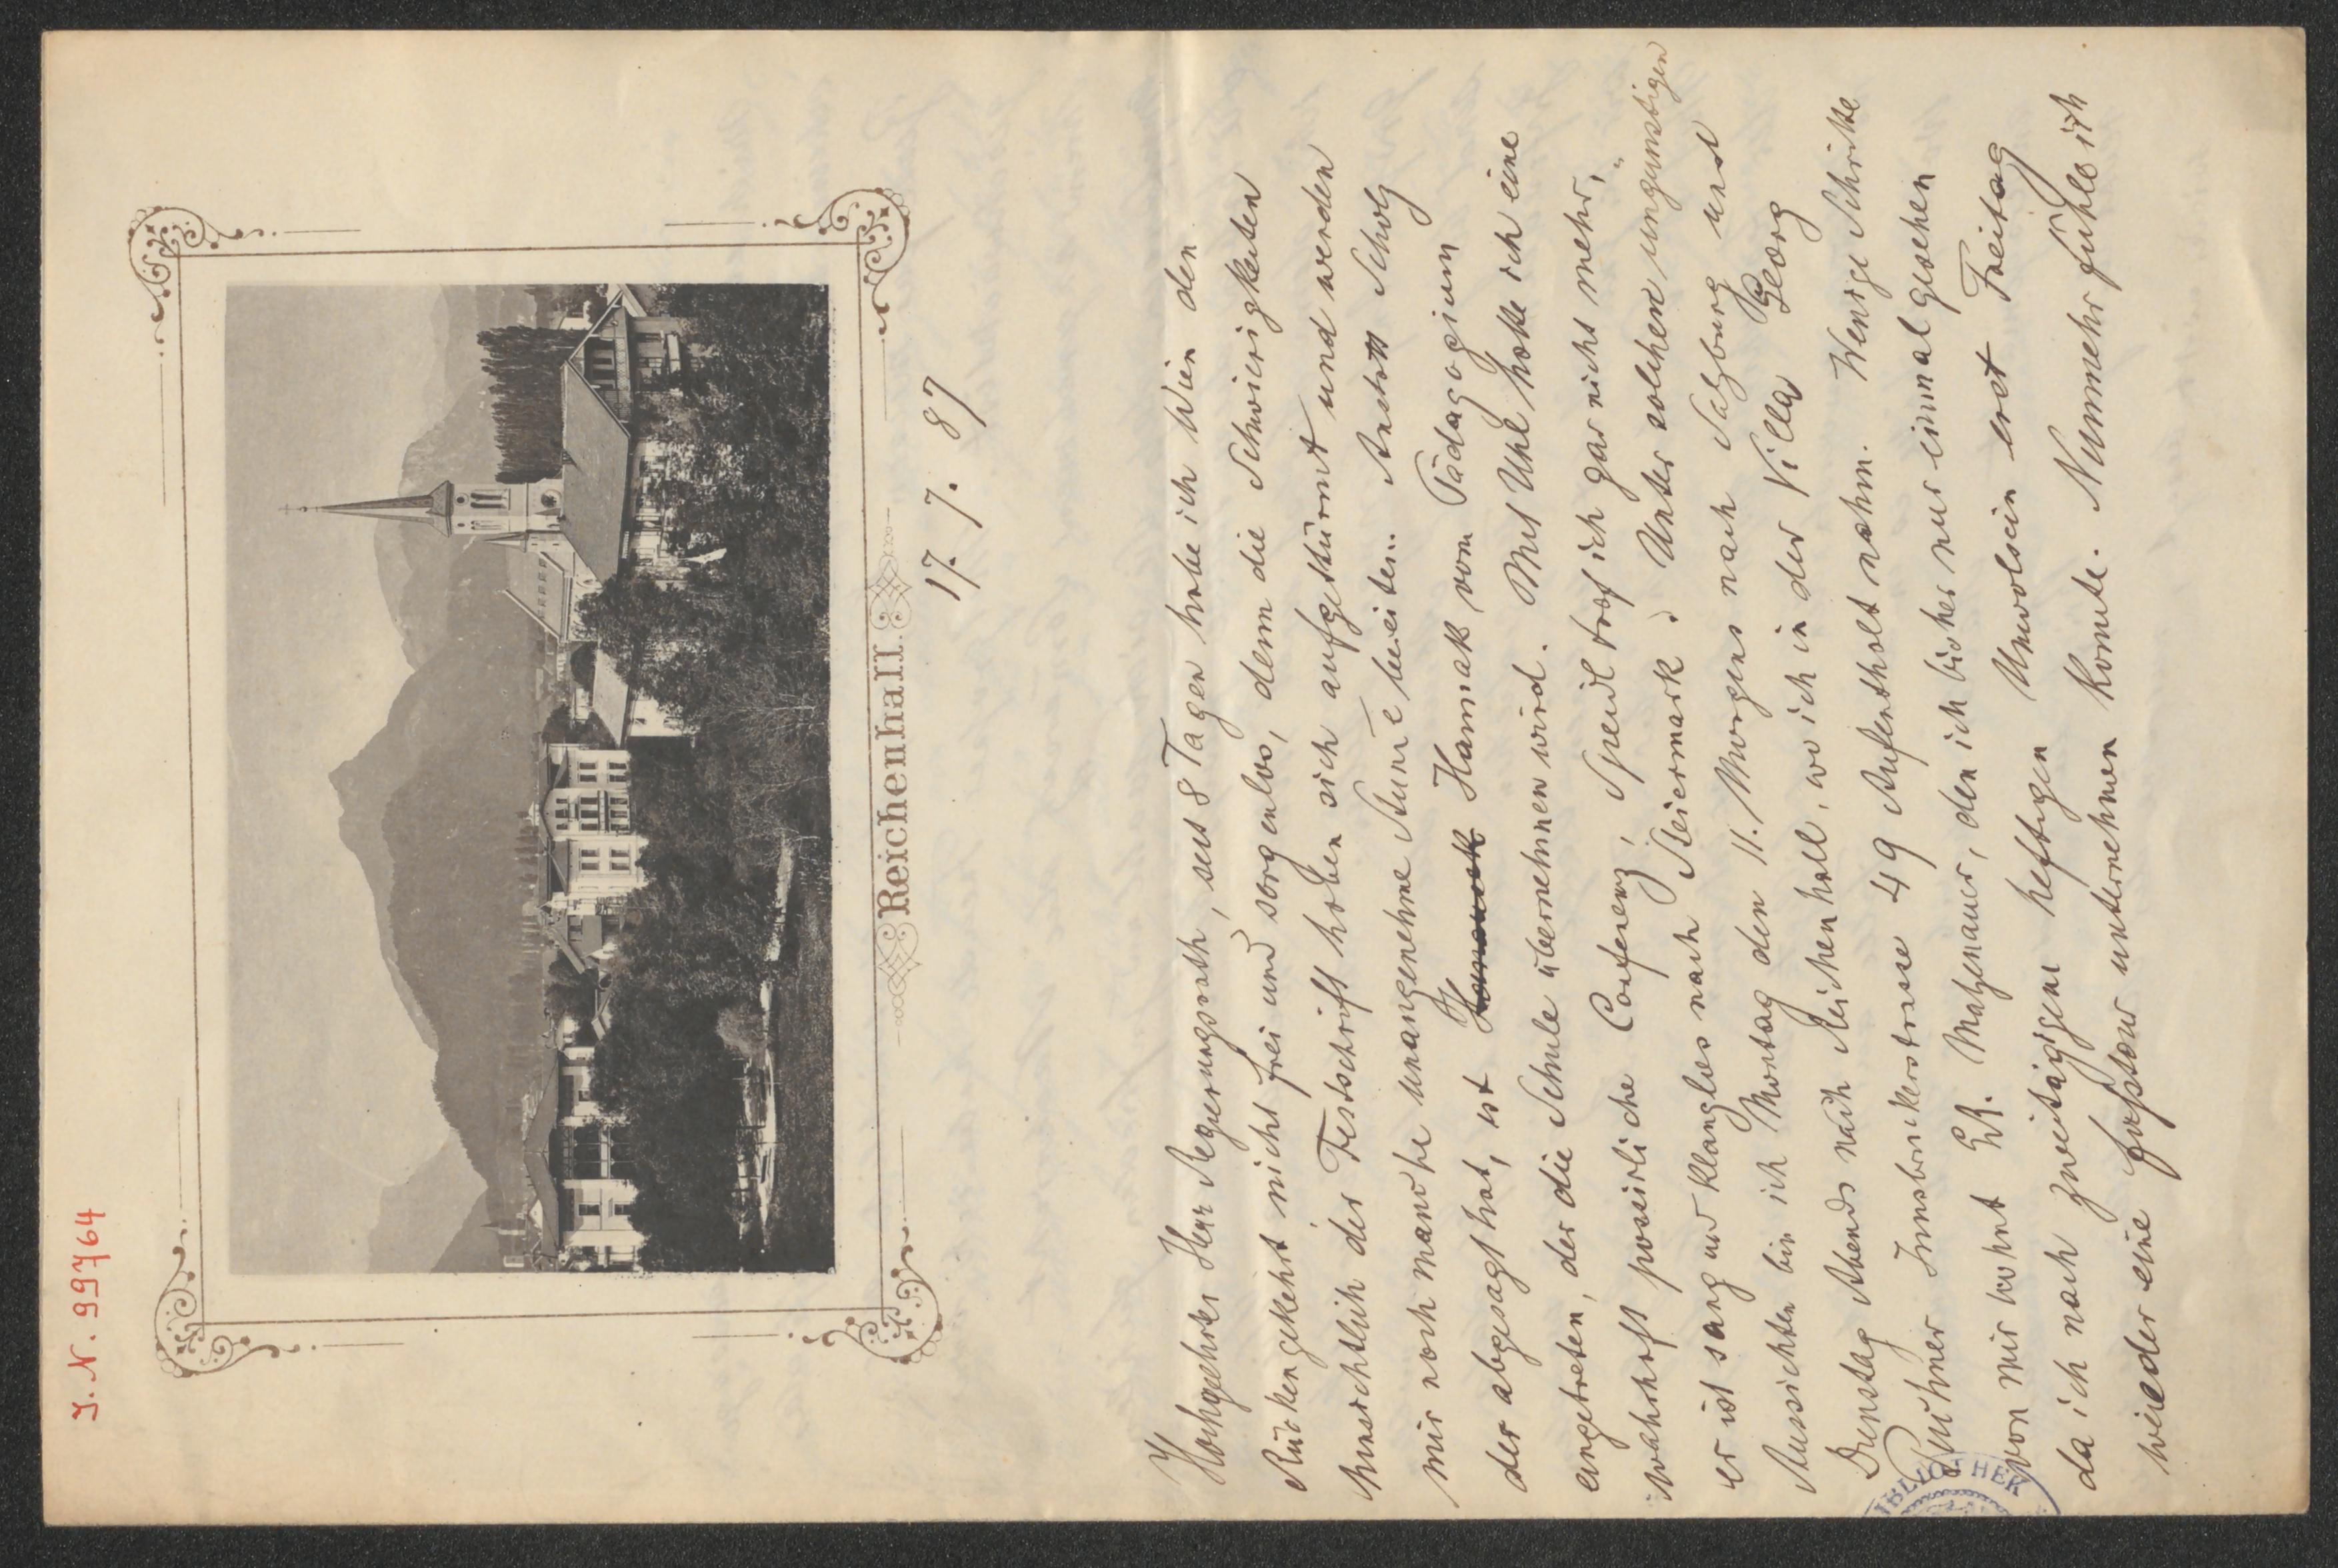 J. N. 99764
Reichenhall.
17. 7. 87
Hochgeehrter Herr Regierungsrath, seit 8 Tagen habe ich Wien den
Rücken gekehrt nicht frei und sorgenlos, denn die Schwierigkeiten
hinsichtlich der Festschrift haben sich aufgetürmt und werden
mir noch manche unangenehme Stunde bereiten. Anstatt Scholz
der abgesagt hat, ist Hannak vom Pädagogium
eingetreten, der die Schule übernehmen wird. Mit Uhl hatte ich eine
wahrhaft possirliche Conferenz, Speidl traf ich gar nicht mehr,
er ist sang und klanglos nach Steiermark. Unter solchen ungünstigen
Aussichten bin ich Montag den 11. Morgens nach Salzburg und
Dienstag Abends nach Reichenhall, wo ich in der Villa Georg
Puthner Innsbruckerstrasse 49 Aufenthalt nahm. Wenige Schritte
von mir wohnt Matzenauer, den ich bisher nur einmal gesehen
da ich nach zweitägigem heftigen Unwolsein erst Freitag
wieder eine Fußtour unternehmen konnte. Nunmehr fühle ich
BIBLIOTHEK